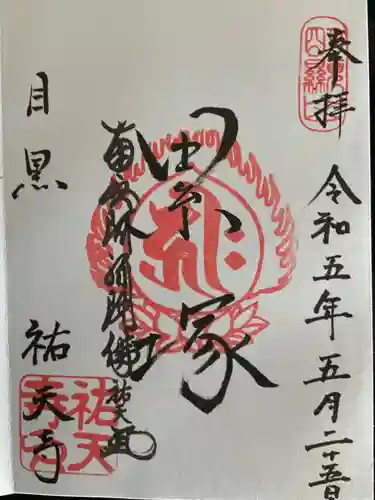 奉拝
令和五年五月二十五日
累塚
南無阿弥陀佛 祐天
目黒 祐天寺
祐天